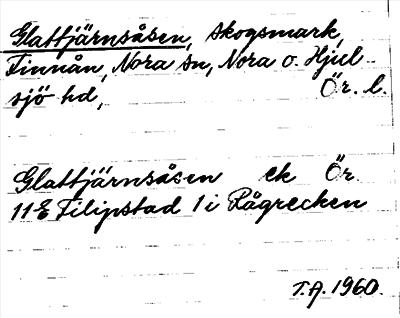 Glattjärnsåsen, skogsmark,
Finnån, Nora sn, Nora o. Hjul-
sjö hd, Ör. l.
Glattjärnsåsen ek Ör
11E Filipstad 1 i Rågrecken
T.A. 1960.